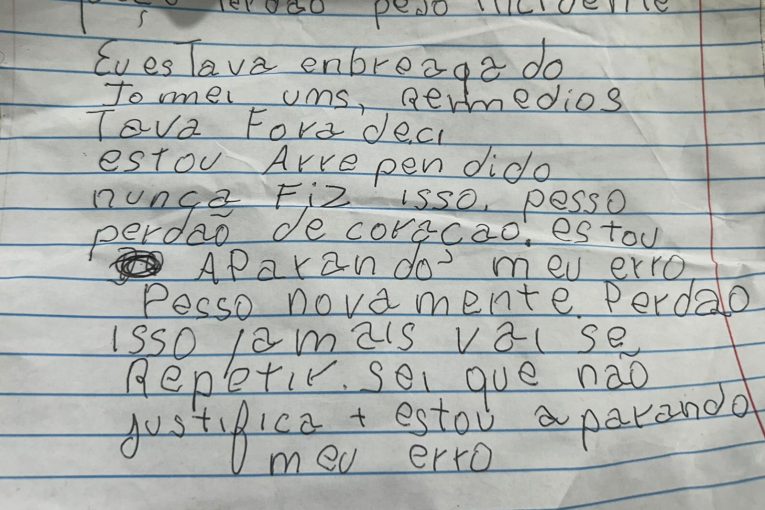 perdão peso incidente
Eu estava enbreagado
Tomei ums, Remedios
Tava Fora deci
estou Arrependido
nunca Fiz isso. pesso
perdão de coração. estou
AParando meu erro
Pesso novamente. Perdao
isso jamais vai se
Repetir. sei que não
justifica + estou aparando
meu erro